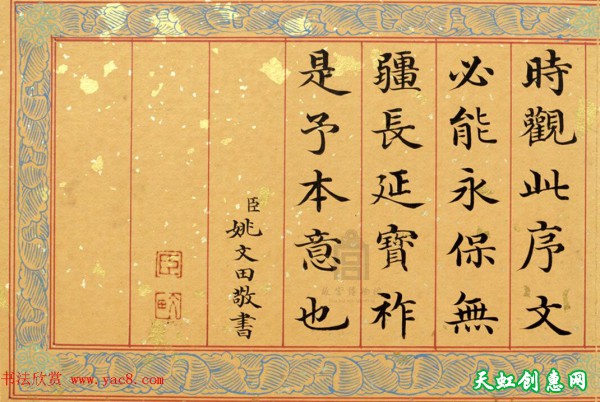 時觀此序文
必能永保無
疆長延寶祚
是予本意也
臣姚文田敬書
臣
书法欣赏 www.yac8.com
天虹创惠网